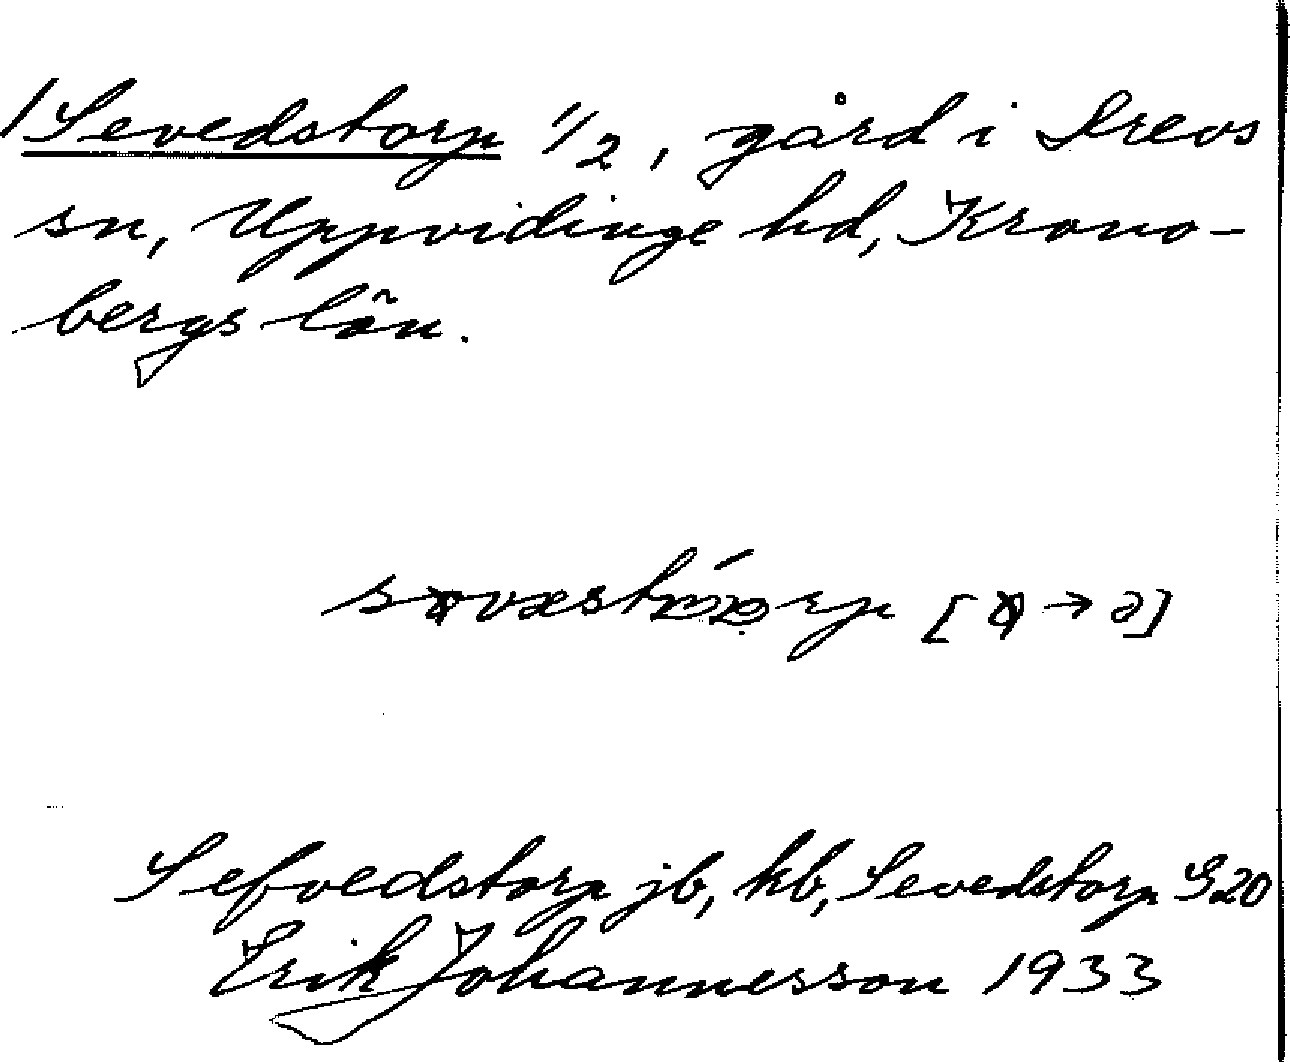 /Sevedstorp 1/2, gård i Drevs
sn, Uppvidinge hd, Krono-
bergs län.
Sefvedstorp jb, kb, Sevedstorp G20
Erik Johannesson 1933